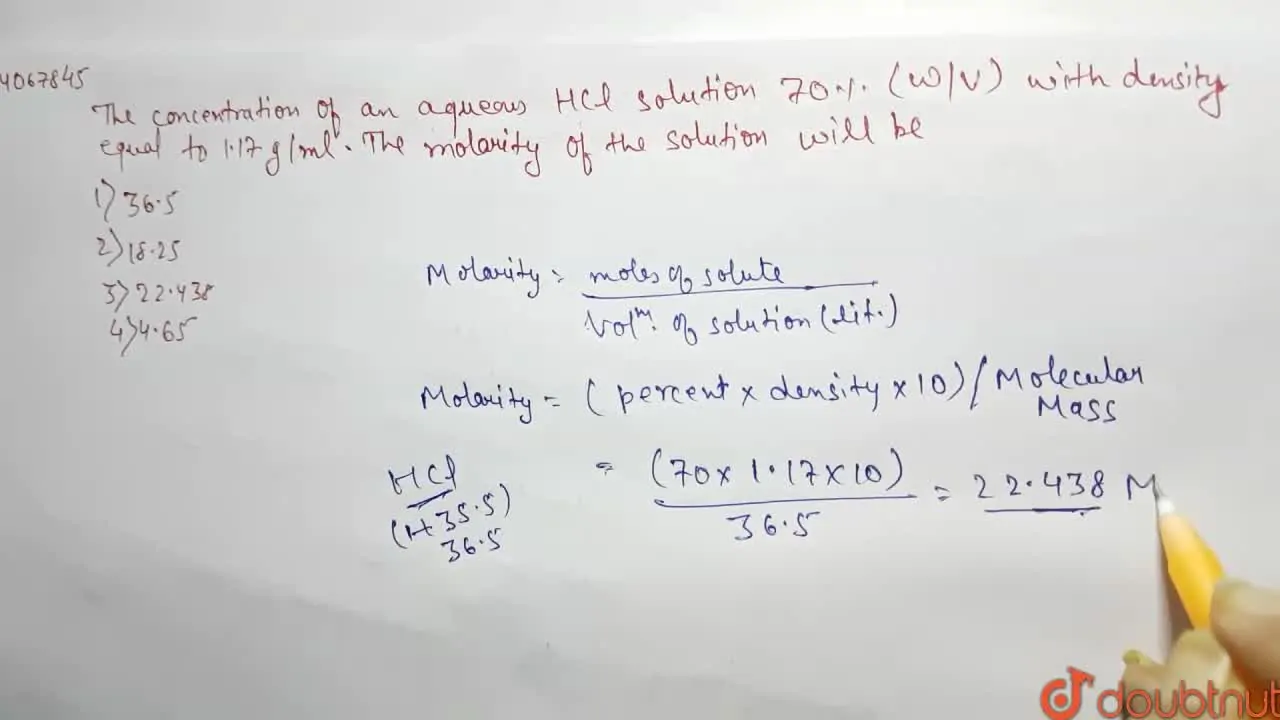 4067845
The concentration of an aqueous HCl solution 70%. (W/V) with density
equal to 1.17 g/ml. The molarity of the solution will be
1) 36.5
2) 18.25
3) 22.438
4) 4.65
Molarity = moles of solute
Volm. of solution (lit.)
Molarity = (percent x density x 10) / Molecular
Mass
HCl
(1+35.5)
36.5
= (70 x 1.17 x 10) = 22.438 M
36.5
doubtnut